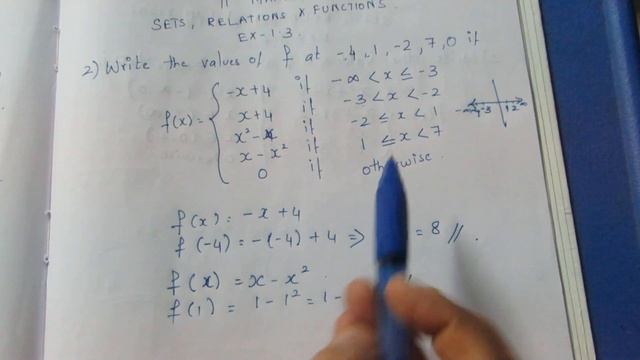 SETS, RELATIONS X FUNCTIONS.
EX-1.3
2) Write the values of f at -4, 1, -2, 7, 0 if
f(x) = { -x+4 if -∞ < x ≤ -3
x+4 if -3 < x < -2
x² - x if -2 ≤ x < 1
x - x² if 1 ≤ x < 7
0 if otherwise.
f(x) = -x + 4
f(-4) = -(-4) + 4 ⇒ = 8 //.
f(x) = x - x²
f(1) = 1 - 1² = 1 -